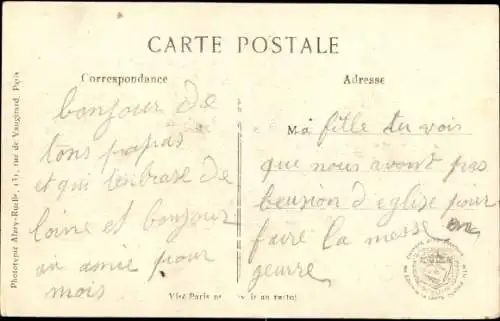 CARTE POSTALE
Correspondance
bonjour de
tons papas
et qui tenbrase de
loine et bonjour
an amie pour
mois
Adresse
Ma fille tu vois
que nous avont pas
beusion d'eglise pour
faire la messe en
geurre
Phototypie Abry-Ruelle, 131, rue de Vaugirard, Paris
Visé Paris au verso